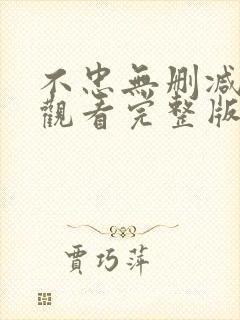 不忠無刪減
觀看完整版
賈巧萍